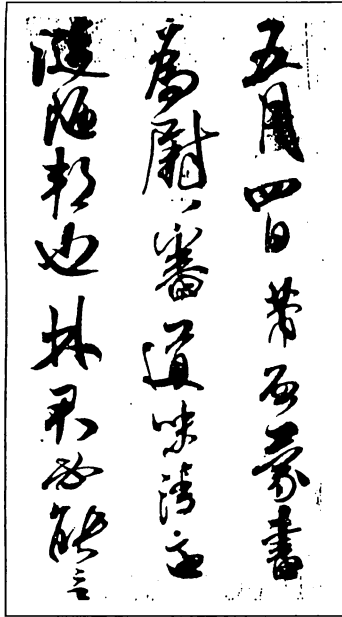 五月四日芾啓蒙書
為慰審道味清適
漣陋邦也林君必能言